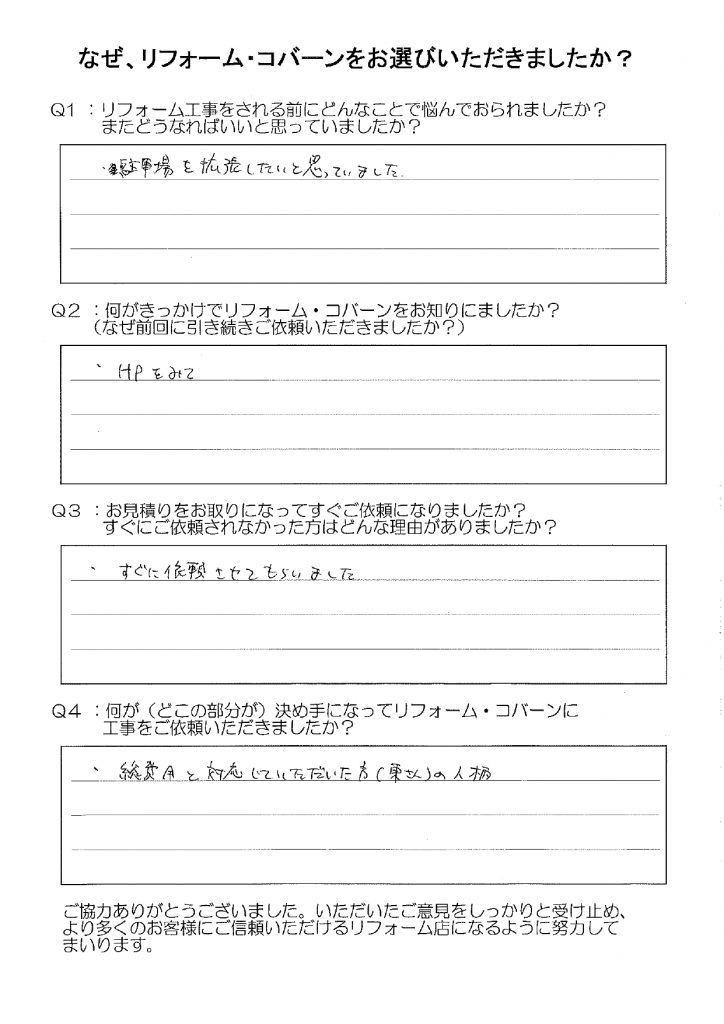 なぜ、リフォーム・コバーンをお選びいただきましたか？
Q1 ：リフォーム工事をされる前にどんなことで悩んでおられましたか？
またどうなればいいと思っていましたか？
・駐車場を拡張したいと思っていました。
Q2 ：何がきっかけでリフォーム・コバーンをお知りにましたか？
（なぜ前回に引き続きご依頼いただきましたか？）
・HPをみて
Q3 ：お見積りをお取りになってすぐご依頼になりましたか？
すぐにご依頼されなかった方はどんな理由がありましたか？
・すぐに依頼させてもらいました
Q4 ：何が（どこの部分が）決め手になってリフォーム・コバーンに
工事をご依頼いただきましたか？
・総費用と対応していただいた方(東さん)の人柄
ご協力ありがとうございました。いただいたご意見をしっかりと受け止め、
より多くのお客様にご信頼いただけるリフォーム店になるように努力して
まいります。